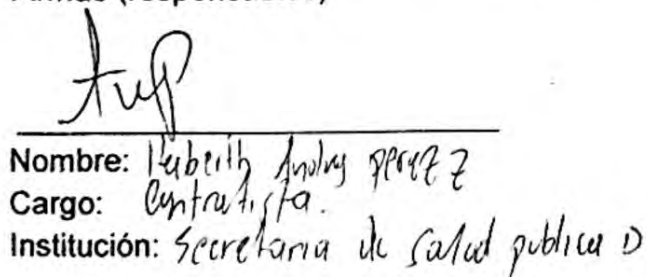 Nombre: Heberth Andres perez z
Cargo: Contratista.
Institución: Secretaria de salud publica D